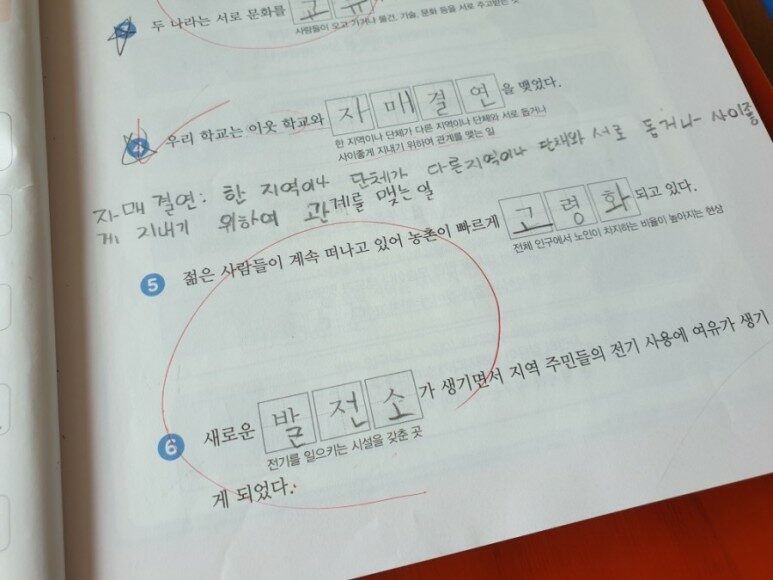 두 나라는 서로 문화를
사람들이 오고 가거나 물건, 기술, 문화 등을 서로 주고받는 것
4 우리 학교는 이웃 학교와 자매결연을 맺었다.
한 지역이나 단체가 다른 지역이나 단체와 서로 돕거나
사이좋게 지내기 위하여 관계를 맺는 일
자매결연: 한 지역이나 단체가 다른지역이나 단채와 서로 돕거나 사이좋
게 지내기 위하여 관계를 맺는일
5 젊은 사람들이 계속 떠나고 있어 농촌이 빠르게 고령화되고 있다.
전체 인구에서 노인이 차지하는 비율이 높아지는 현상
6 새로운 발전소가 생기면서 지역 주민들의 전기 사용에 여유가 생기
전기를 일으키는 시설을 갖춘 곳
게 되었다.